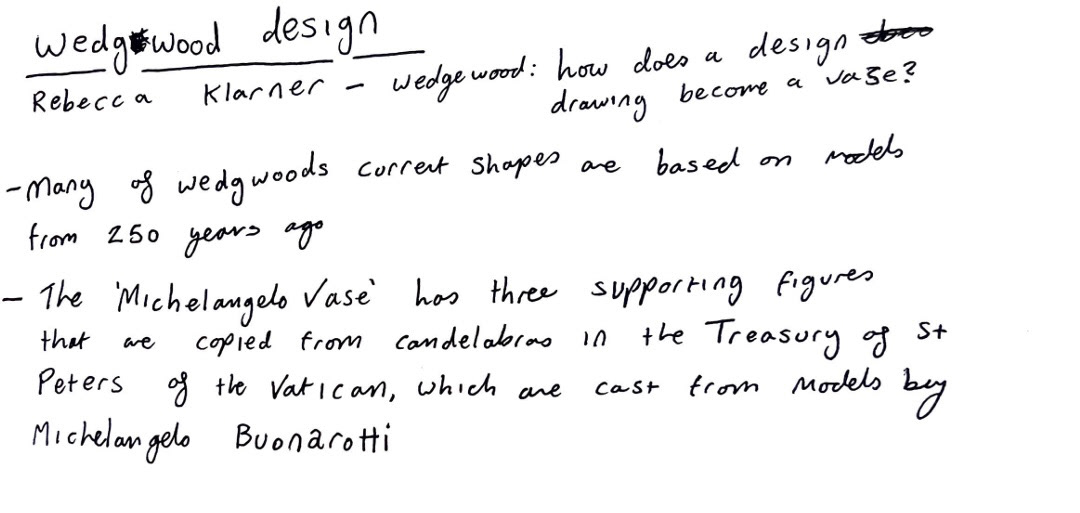 Wedgwood design
Rebecca Klarner - Wedgewood: how does a design
drawing become a vase?
- Many of wedgwoods current shapes are based on models
from 250 years ago
- The 'Michelangelo Vase' has three supporting figures
that are copied from candelabras in the Treasury of St
Peters of the Vatican, which are cast from models by
Michelangelo Buonarotti